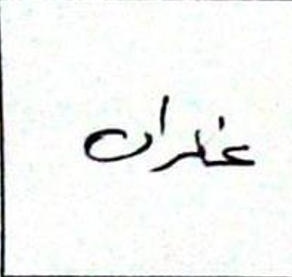 غفران